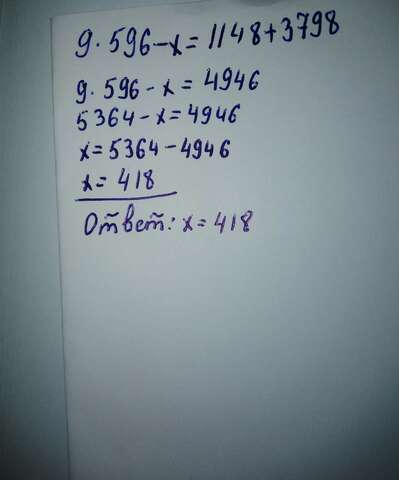 9·596-x=1148+3798
9·596-x=4946
5364-x=4946
x=5364-4946
x=418
Ответ: x=418